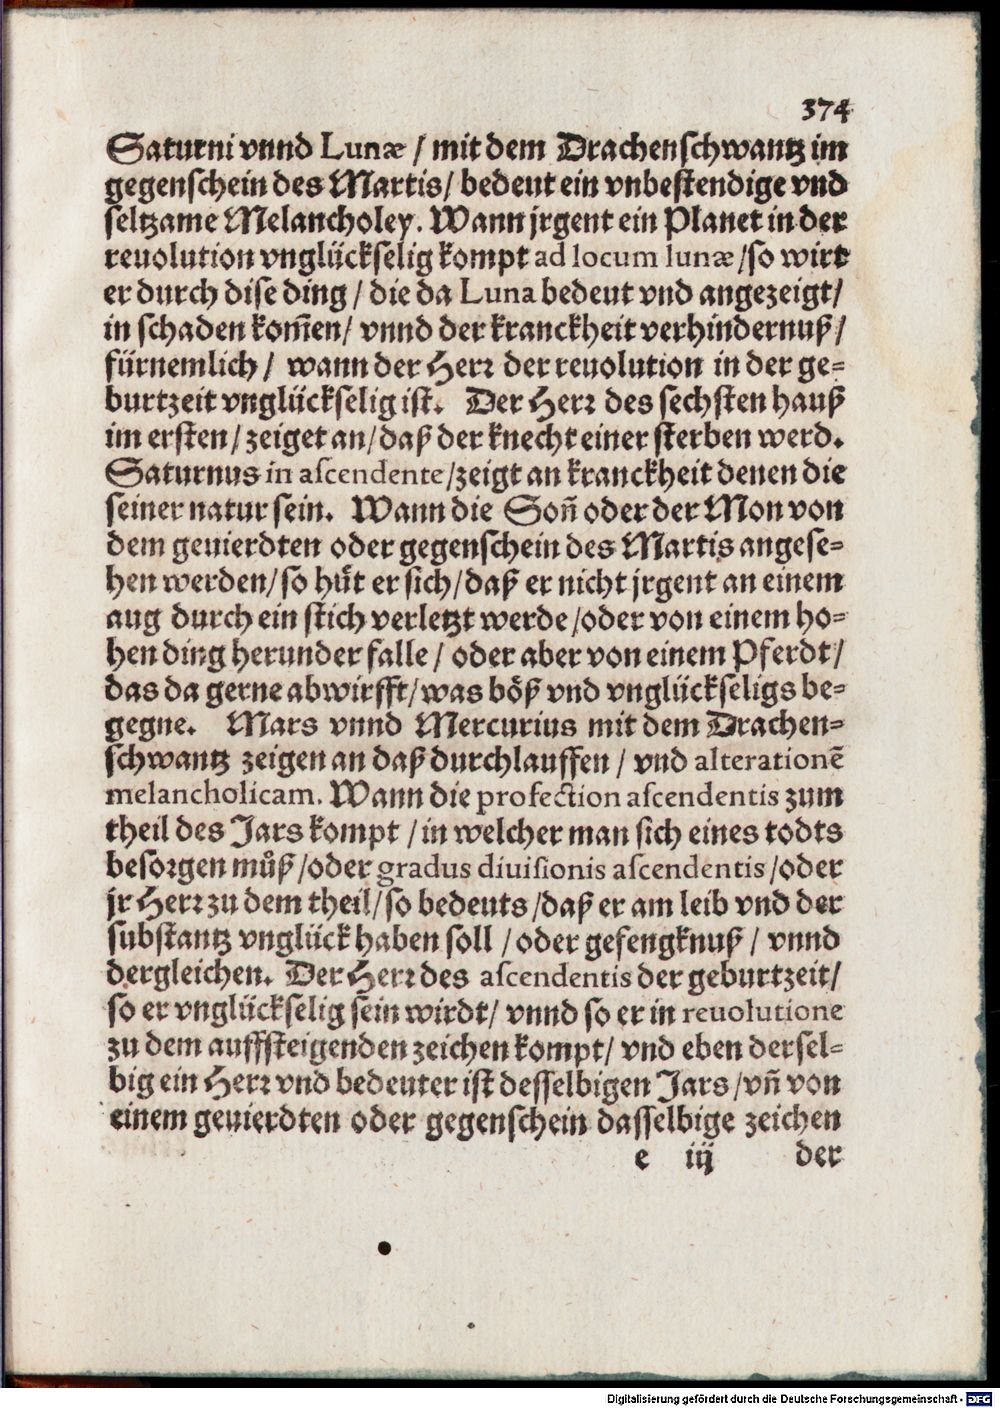 374
Saturni vnnd Lunæ / mit dem Drachenschwantz im
gegenschein des Martis / bedeut ein vnbestendige vnd
seltzame Melancholey. Wann jrgent ein Planet in der
reuolution vnglückselig kompt ad locum lunæ / so wirt
er durch dise ding / die da Luna bedeut vnd angezeigt /
in schaden kom̃en / vnnd der kranckheit verhindernuß /
fürnemlich / wann der Herr der reuolution in der ge=
burtzeit vnglückselig ist. Der Herr des sechsten hauß
im ersten / zeiget an / daß der knecht einer sterben werd.
Saturnus in aſcendente / zeigt an kranckheit denen die
seiner natur sein. Wann die Soñ oder der Mon von
dem geuierdten oder gegenschein des Martis angese=
hen werden / so huͤt er sich / daß er nicht jrgent an einem
aug durch ein stich verletzt werde / oder von einem ho=
hen ding herunder falle / oder aber von einem Pferdt /
das da gerne abwirfft / was böß vnd vnglückseligs be=
gegne. Mars vnnd Mercurius mit dem Drachen=
schwantz zeigen an daß durchlauffen / vnd alterationẽ
melancholicam. Wann die profection aſcendentis zum
theil des Jars kompt / in welcher man sich eines todts
besorgen můß / oder gradus diuiſionis aſcendentis / oder
jr Herr zu dem theil / so bedeuts / daß er am leib vnd der
substantz vnglück haben soll / oder gefengknuß / vnnd
dergleichen. Der Herr des aſcendentis der geburtzeit /
so er vnglückselig sein wirdt / vnnd so er in reuolutione
zu dem auffsteigenden zeichen kompt / vnd eben dersel=
big ein Herr vnd bedeuter ist desselbigen Jars / vñ von
einem geuierdten oder gegenschein dasselbige zeichen
e iij der
Digitalisierung gefördert durch die Deutsche Forschungsgemeinschaft - DFG